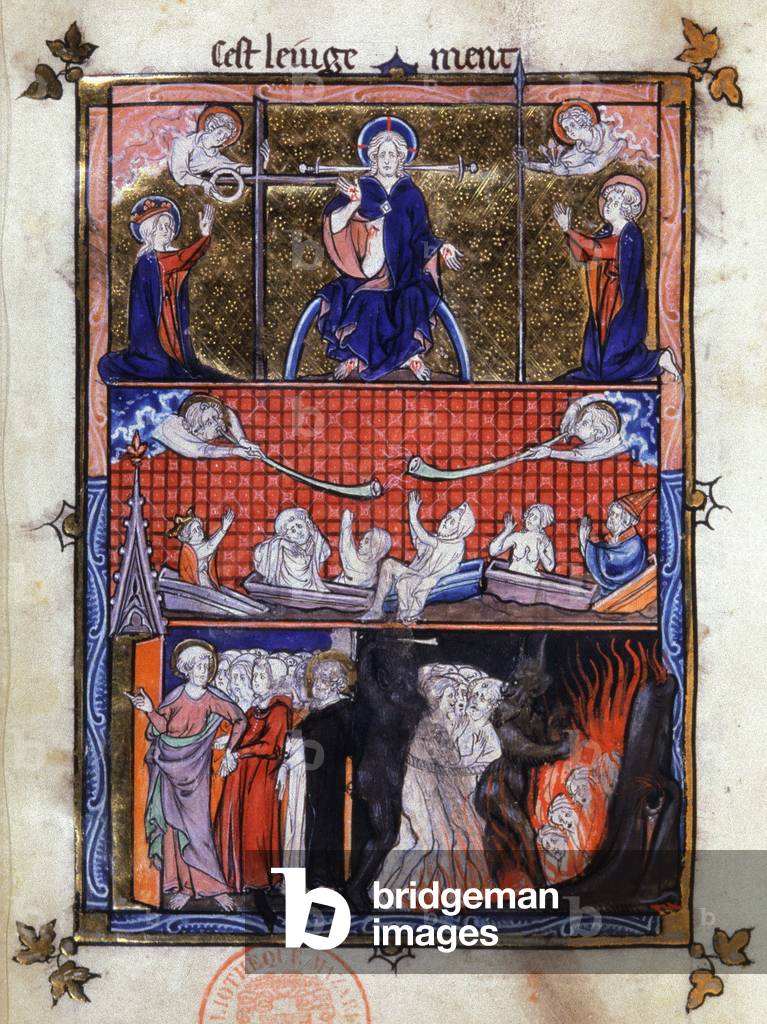 Cest le iuge ment
b bridgeman
images